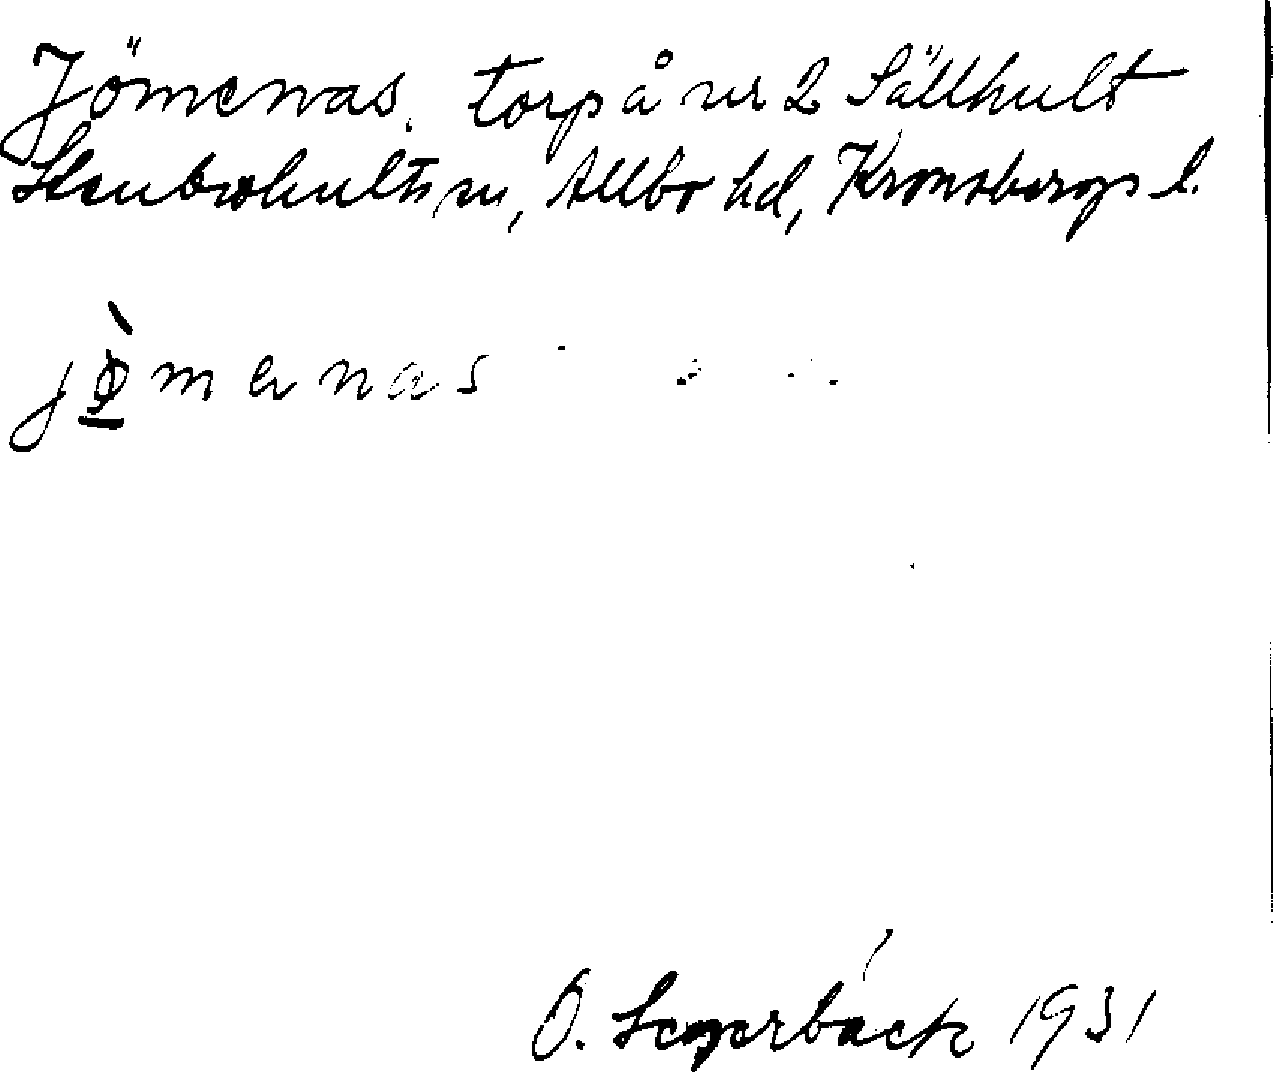 Jömenas. torp å nr 2 Sällhult
Stenbrohults sn, Allbo hd, Kronobergs l.
jömenas
O. Segerbäck 1931